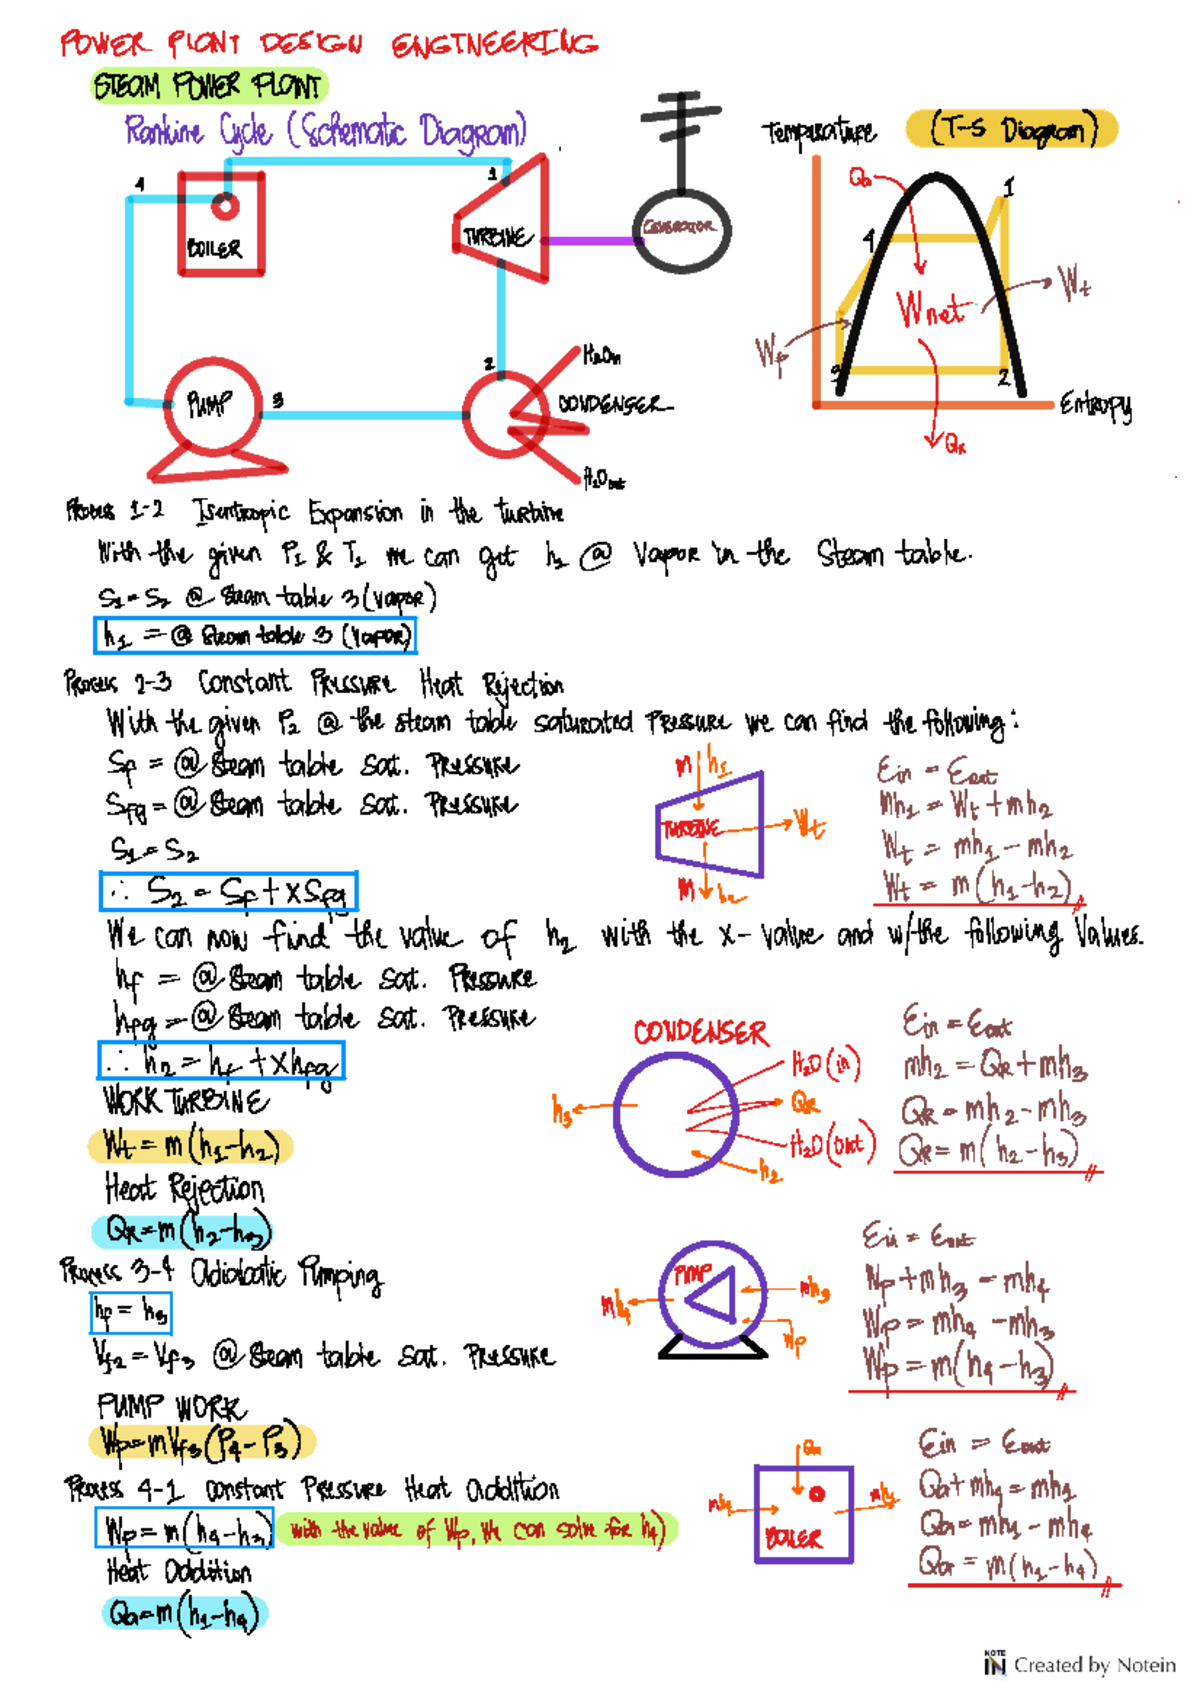 POWER PLANT DESIGN ENGINEERING
STEAM POWER PLANT
Rankine Cycle (Schematic Diagram)
Temperature
(T-S Diagram)
4
BOILER
1
TURBINE
GENERATOR
2
H2O in
CONDENSER
H2O out
3
PUMP
Qa
1
4
Wnet
Wt
Wp
3
2
Entropy
QR
Process 1-2 Isentropic Expansion in the turbine
With the given P1 & T1 we can get h1 @ Vapor in the Steam table.
S1 = S2 @ Steam table 3 (vapor)
h1 = @ Steam table 3 (Vapor)
Process 2-3 Constant Pressure Heat Rejection
With the given P2 @ the steam table saturated Pressure we can find the following:
Sf = @ Steam table sat. Pressure
Sfg = @ Steam table sat. Pressure
S1 = S2
∴ S2 = Sf + xSfg
m h1
TURBINE
Wt
m h2
Ein = Eout
mh1 = Wt + mh2
Wt = mh1 - mh2
Wt = m(h1-h2)
We can now find the value of h2 with the x-value and w/the following Values.
hf = @ Steam table sat. Pressure
hfg = @ Steam table sat. Pressure
∴ h2 = hf + xhfg
WORK TURBINE
Wt = m(h1-h2)
Heat Rejection
QR = m(h2-h3)
CONDENSER
H2O (in)
h3
QR
H2O (out)
h2
Ein = Eout
mh2 = QR + mh3
QR = mh2 - mh3
QR = m(h2-h3)
Process 3-4 Adiabatic Pumping
hf = h3
Vf2 = Vf3 @ Steam table sat. Pressure
PUMP WORK
Wp = mVf3(P4-P3)
PUMP
mh3
mh4
Wp
Ein = Eout
Wp + mh3 = mh4
Wp = mh4 - mh3
Wp = m(h4-h3)
Process 4-1 Constant Pressure Heat Addition
Wp = m(h4-h3) with the value of Wp, we can solve for h4)
Heat Addition
Qa = m(h1-h4)
Qa
mh4
mh1
BOILER
Ein = Eout
Qa + mh4 = mh1
Qa = mh1 - mh4
Qa = m(h1-h4)
NOTE IN Created by Notein